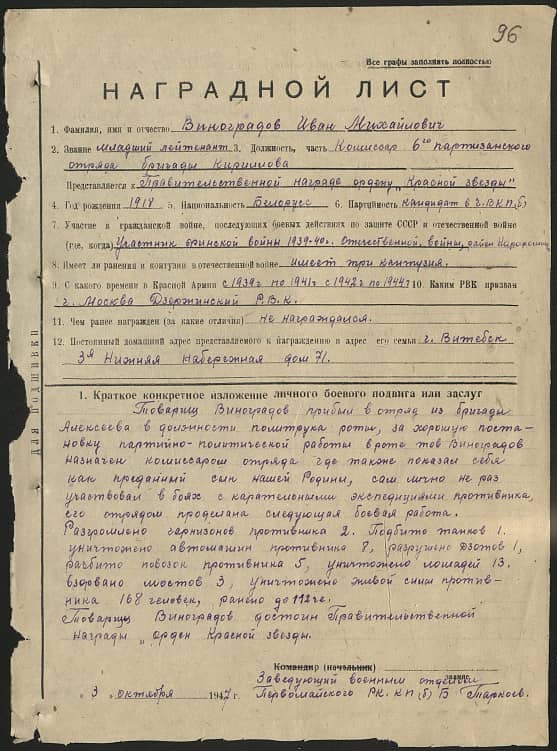 96
Все графы заполнять полностью
НАГРАДНОЙ ЛИСТ
1. Фамилия, имя и отчество Виноградов Иван Михайлович
2. Звание младший лейтенант 3. Должность, часть Комиссар 6го партизанского
отряда бригады Кириллова
Представляется к Правительственной награде ордену „Красной звезды"
4. Год рождения 1918 5. Национальность Белорусс 6. Партийность кандидат в чл. ВКП(б)
7. Участие в гражданской войне, последующих боевых действиях по защите СССР и отечественной войне
(где, когда) Участник финской войны 1939-40г. Отечественной войны, район
8. Имеет ли ранения и контузии в отечественной войне имеет три контузия.
9. С какого времени в Красной Армии с 1939г по 1941г с 1942г по 1944г 10. Каким РВК призван
г. Москва Дзержинский Р.В.К.
11. Чем ранее награжден (за какие отличия) не награждался.
12. Постоянный домашний адрес представляемого к награждению и адрес его семьи г. Витебск
3я Нижняя Набережная дом 71.
ДЛЯ ПОДШИВКИ
1. Краткое конкретное изложение личного боевого подвига или заслуг
Товарищ Виноградов прибыл в отряд из бригады
Алексеева в должности политрука роты, за хорошую поста-
новку партийно-политической работы в роте тов Виноградов
назначен комиссаром отряда где также показал себя
как преданный сын нашей Родины, сам лично не раз
участвовал в боях с карательными экспедициями противника,
его отрядом проделана следующая боевая работа.
Разгромлено гарнизонов противника 2. Подбито танков 1.
уничтожено автомашин противника 8, разрушено дзотов 1,
разбито повозок противника 5, уничтожено лошадей 13.
взорвано мостов 3, уничтожено живой силы против-
ника 168 человек, ранено до 112 че.
Товарищ Виноградов достоин Правительственной
награды „Орден Красной звезды.
Командир (начальник)
Заведующий военным отделом
звание
3 октября 1947 г. Первомайского РК. КП(б)Б